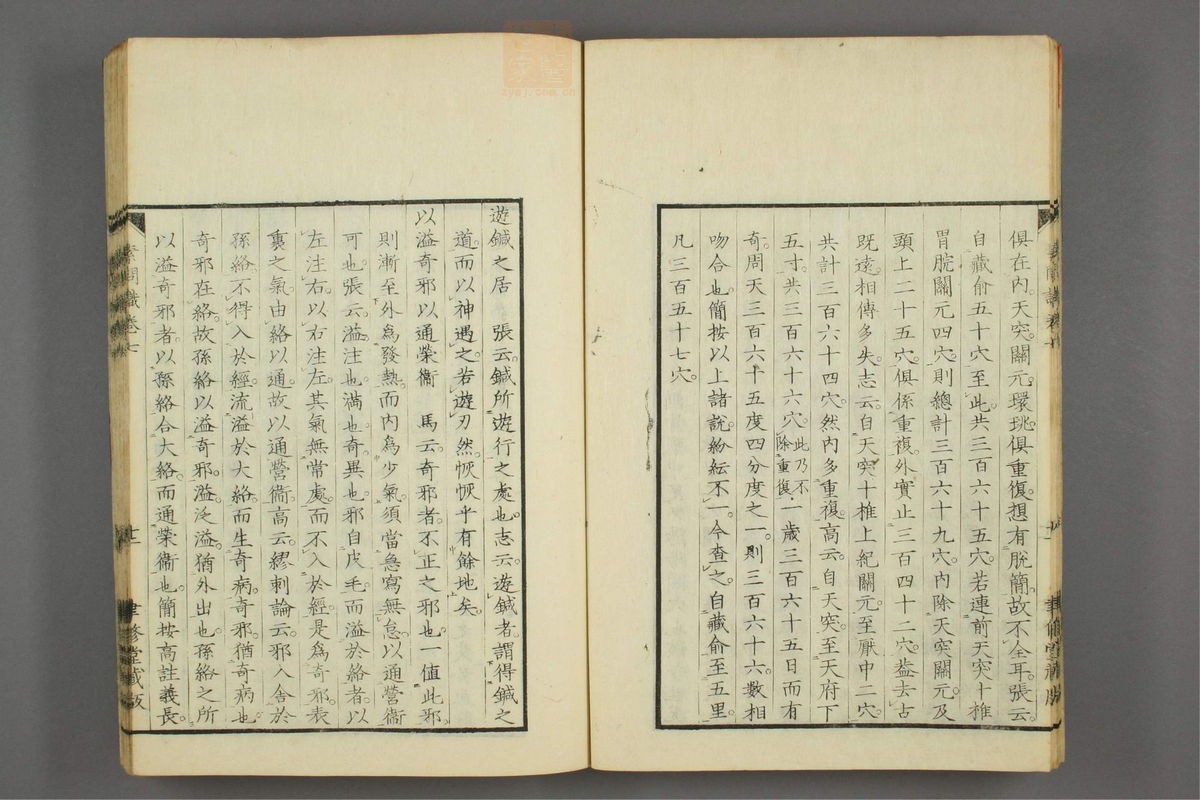 俱在内天突關元環珧俱重復想有脫簡故不全耳張云
自藏俞五十穴至此共三百六十五穴若連前天突十椎
胃脘關元四穴則總計三百六十九穴内除天突關元及
頭上二十五穴俱係重複外實止三百四十二穴葢去古
既遠相傳多失志云自天突十椎上紀關元至厭中二穴
共計三百六十四穴然内多重復高云自天突至天府下
五寸共三百六十六穴此乃不除重復一歲三百六十五日而有
奇周天三百六十五度四分度之一則三百六十六數相
吻合也簡按以上諸說紛紜不一今查之自藏俞至五里
凡三百五十七穴
遊鍼之居 張云鍼所遊行之處也志云遊鍼者謂得鍼之
道而以神遇之若遊刃然恢恢乎有餘地矣
以溢奇邪以通榮衞 馬云奇邪者不正之邪也一值此邪
則漸至外為發熱而内為少氣須當急寫無怠以通營衞
可也張云溢注也滿也奇異也邪自皮毛而溢於絡者以
左注右以右注左其氣無常處而不入於經是為奇邪表
裏之氣由絡以通故以通營衞高云繆刺論云邪入舍於
孫絡不得入於經流溢於大絡而生奇病奇邪猶奇病也
奇邪在絡故孫絡以溢奇邪溢泛溢猶外出也孫絡之所
以溢奇邪者以孫絡合大絡而通榮衞也簡按高註義長
素問識卷七
十二
聿修堂藏版